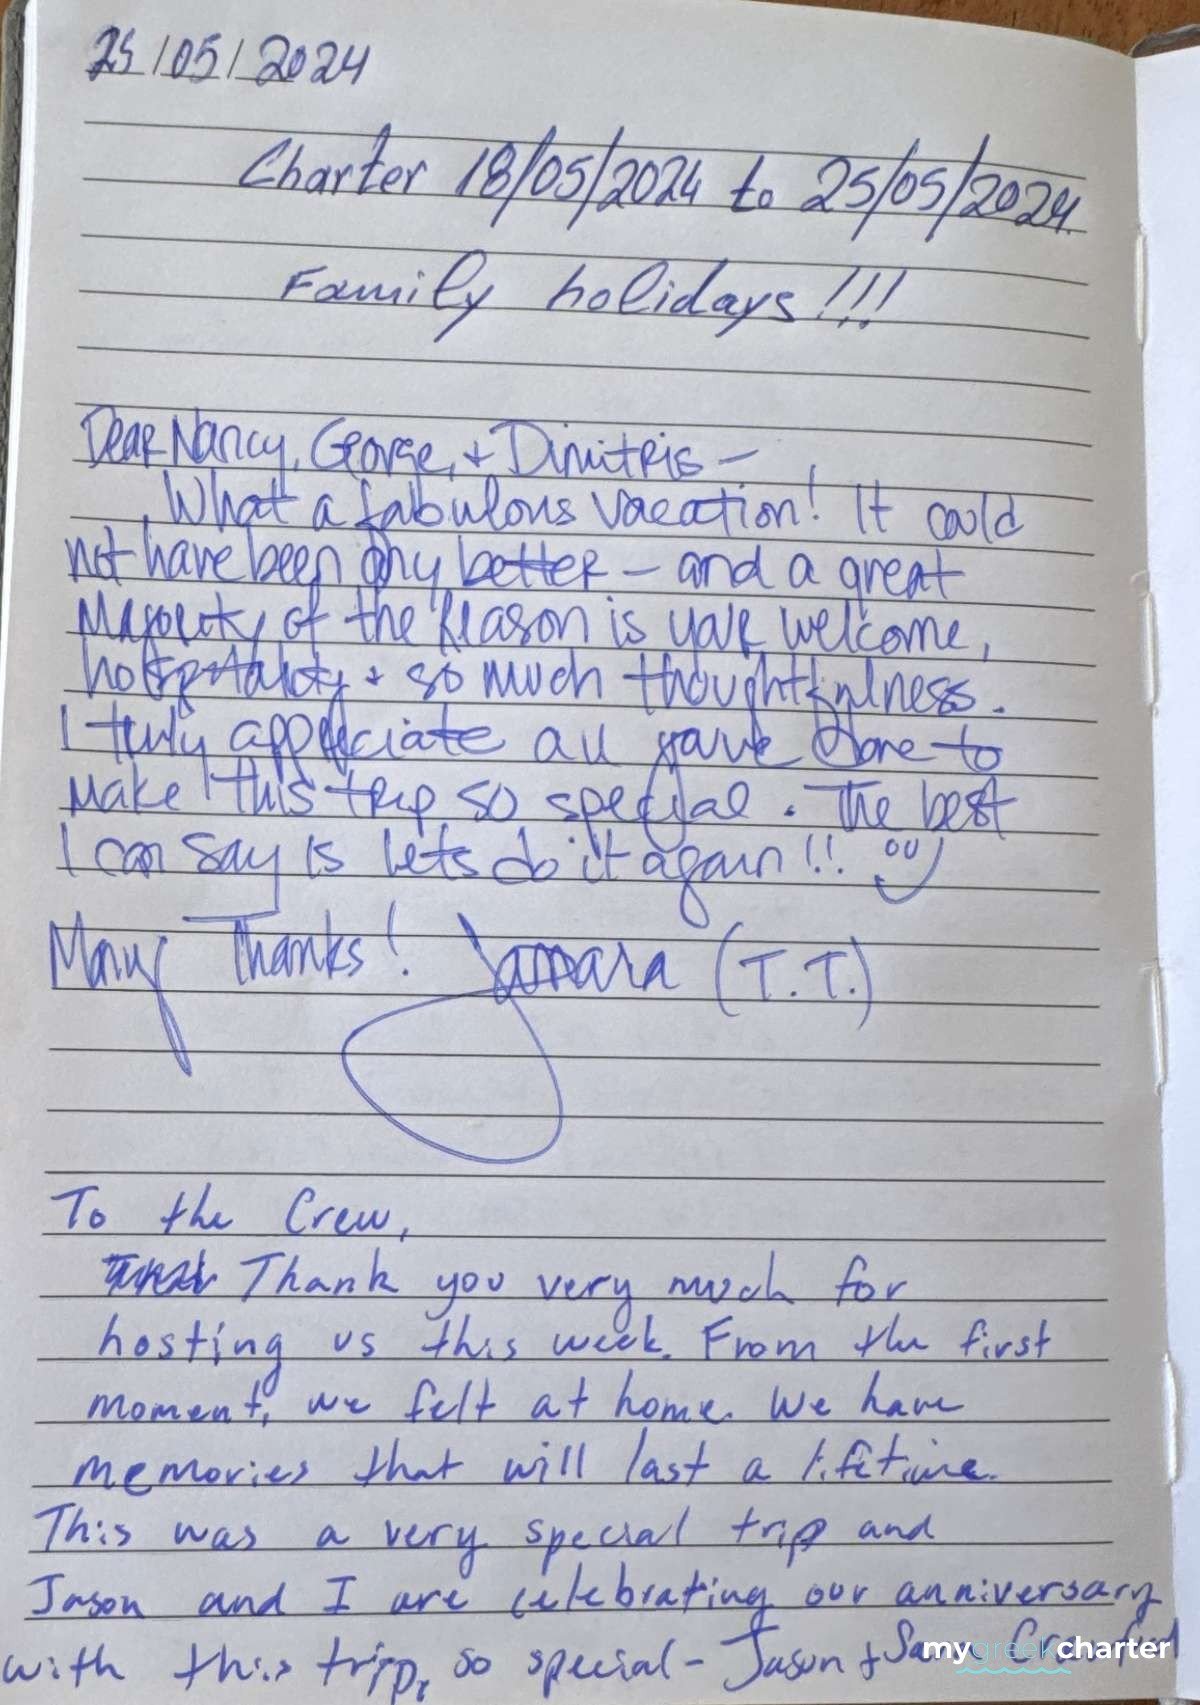 25/05/2024
Charter 18/05/2024 to 25/05/2024.
Family holidays!!!
Dear Nancy, George, + Dimitris –
What a fabulous vacation! It could
not have been any better – and a great
majority of the reason is your welcome,
hospitality + so much thoughtfulness.
I truly appreciate all you've done to
make this trip so special. The best
I can say is lets do it again!!
Many Thanks! Tamara (T.T.)
To the Crew,
Thank you very much for
hosting us this week. From the first
moment, we felt at home. We have
memories that will last a lifetime.
This was a very special trip and
Jason and I are celebrating our anniversary
with this trip, so special – Jason +
mygreekcharter